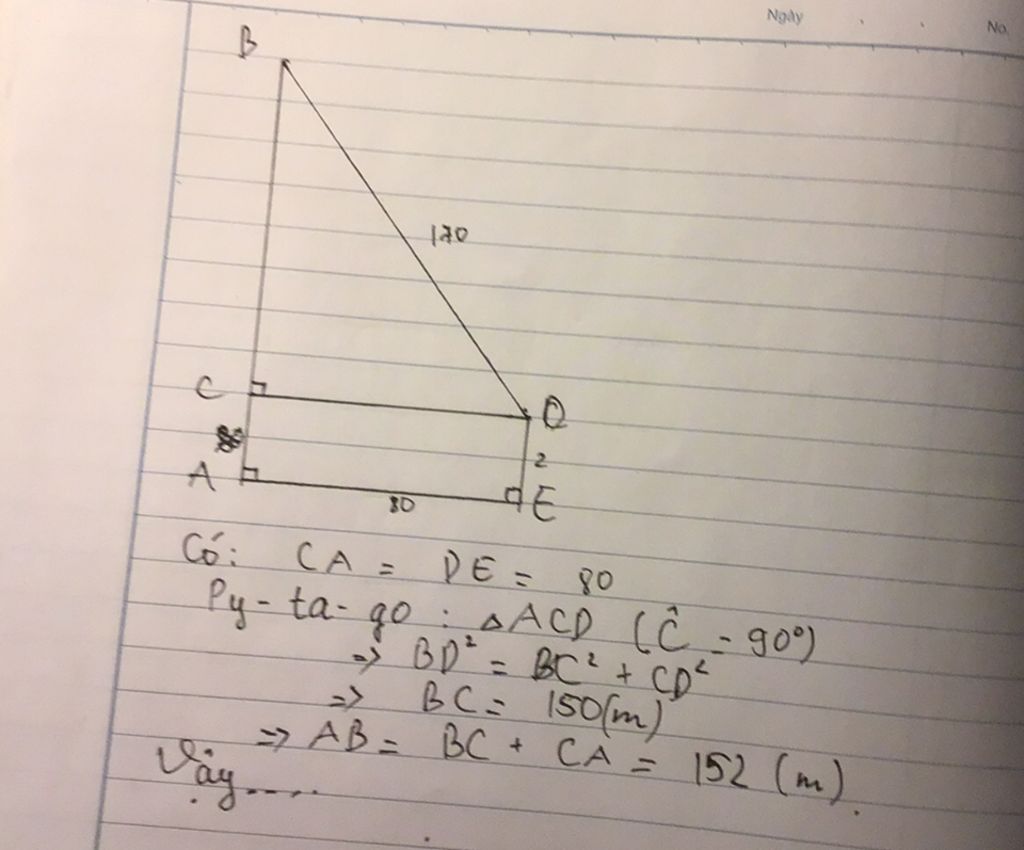 Ngày
No.
B
170
C
D
80
2
A
80
E
Có: CA = DE = 80
Py-ta-go: △ACD (Ĉ = 90°)
=> BD² = BC² + CD²
=> BC = 150(m)
=> AB = BC + CA = 152 (m).
Vậy....